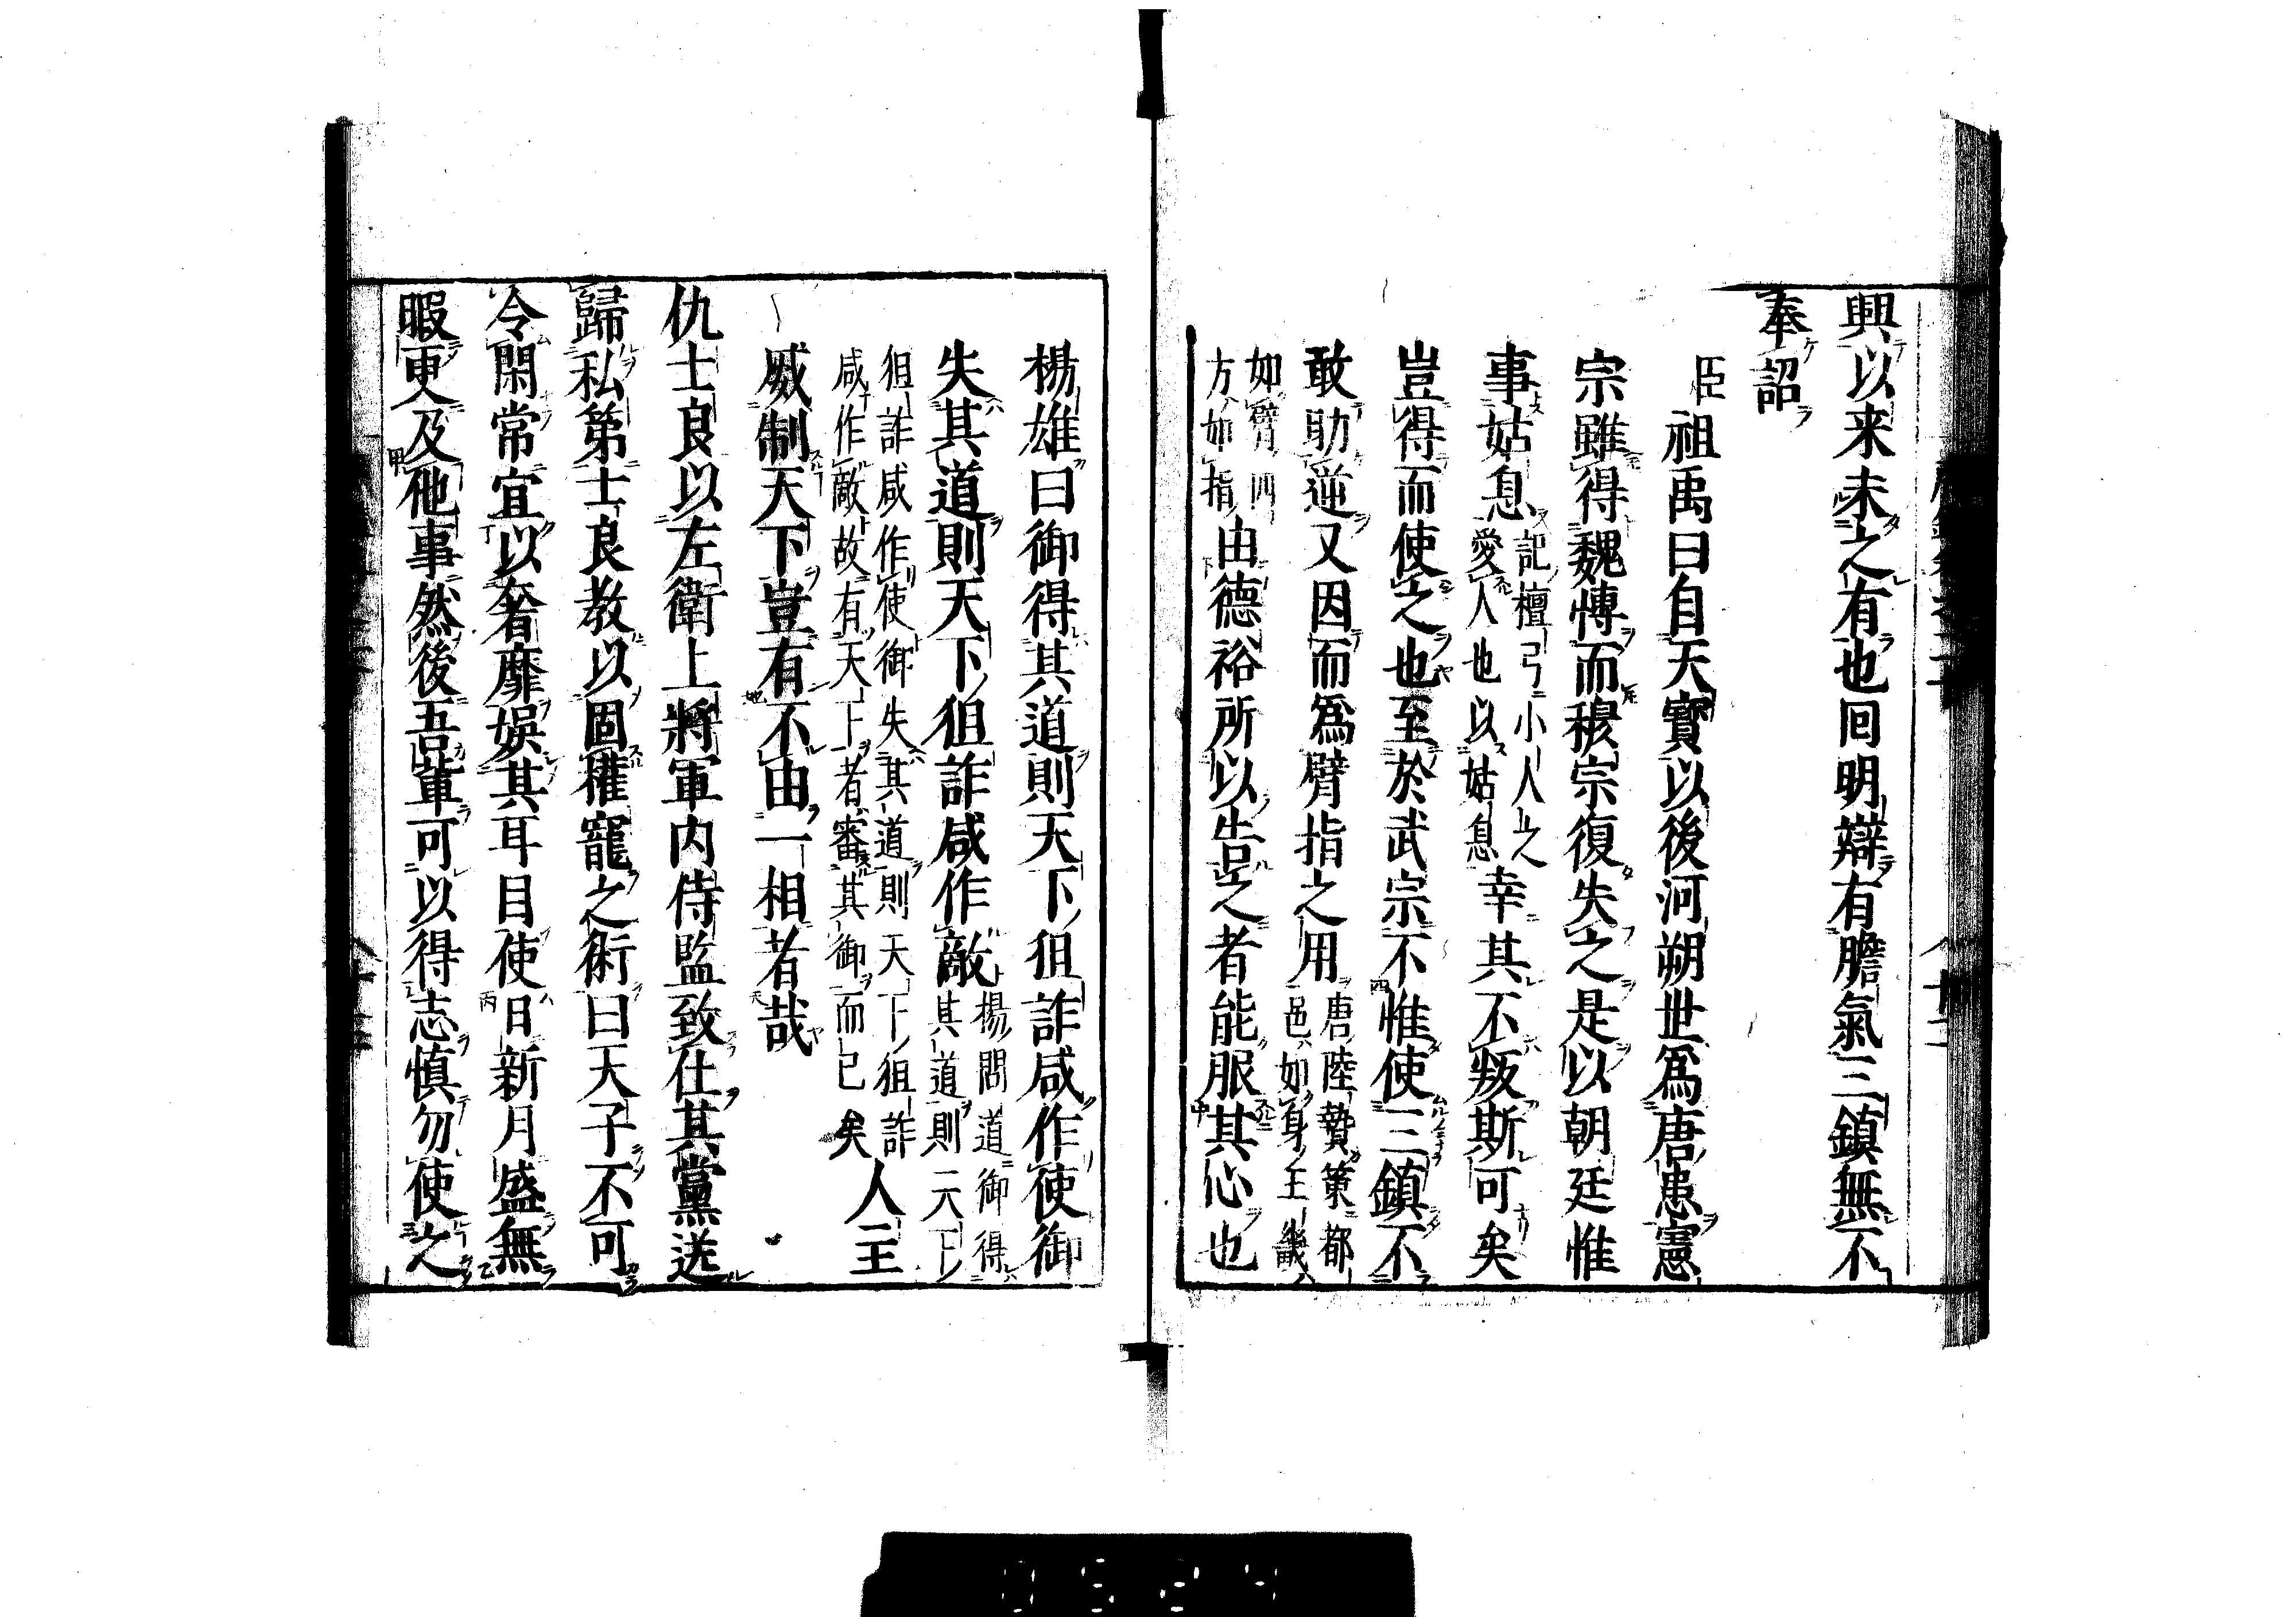 興以来未之有也囘明辯有膽氣三鎮無不
奉詔
臣祖禹曰自天寳以後河朔世爲唐患憲
宗雖得魏愽而穆宗復失之是以朝廷惟
事姑息記檀弓小人之愛人也以姑息幸其不叛斯可矣
豈得而使之也至於武宗不惟使三鎮不
敢助逆又因而爲臂指之用唐陸贄策都邑如身王畿
如臂四方如指由德裕所以告之者能服其心也
楊雄曰御得其道則天下狙詐咸作使御
失其道則天下狙詐咸作敵揚問道御得其道則天下
狙詐咸作使御失其道則天下狙詐咸作敵故有天下者審其御而已矣人主
威制天下豈有不由一相者哉
仇士良以左衛上將軍内侍監致仕其黨送
歸私第士良教以固權寵之術曰天子不可
令閑常宜以奢靡娯其耳目使日新月盛無
暇更及他事然後吾輩可以得志慎勿使之